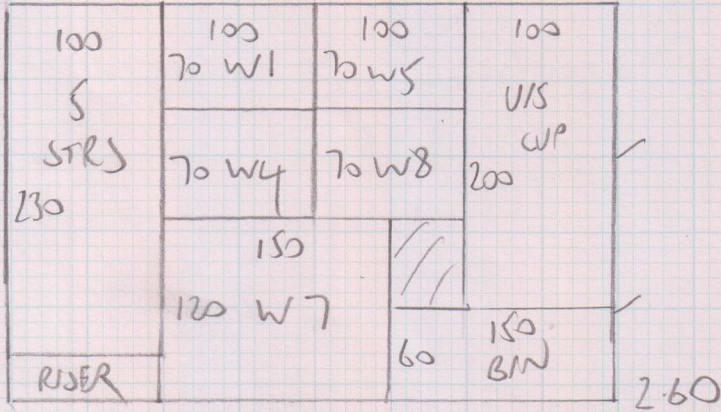 100
5
STRS
230
RISER
100
70 W1
100
70 W5
70 W4
70 W8
150
120 W7
100
U/S
CUP
200
60
150
BIN
2.60